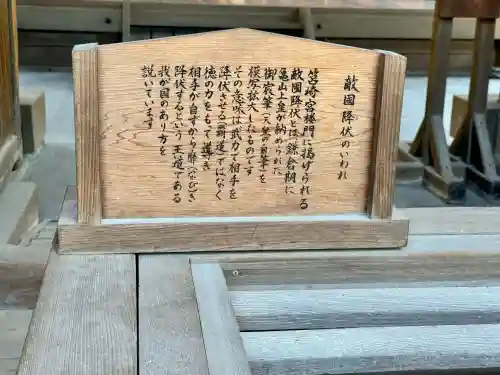 敵国降伏のいわれ
筥崎宮楼門に掲げられる
敵国降伏とは鎌倉期に
亀山上皇が納められた
御宸筆（天皇の直筆）を
模写拡大したものです
その意味は武力で相手を
降伏させる（覇道）ではなく
徳の力をもって導き
相手が自ら靡（なび）き
降伏するという王道である
我が国のあり方を
説いています